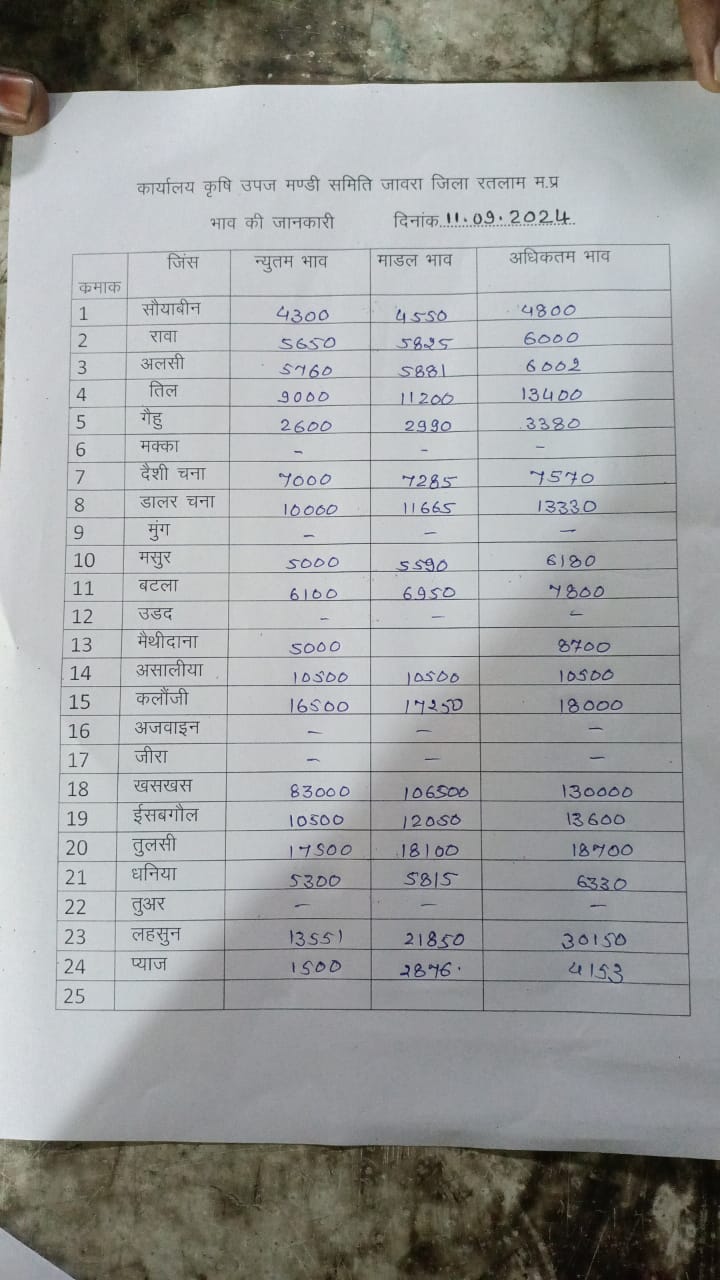 कार्यालय कृषि उपज मण्डी समिति जावरा जिला रतलाम म.प्र
भाव की जानकारी दिनांक 11.09.2024
कमाक जिंस न्युतम भाव माडल भाव अधिकतम भाव
1 सौयाबीन 4300 4550 4800
2 रावा 5650 5825 6000
3 अलसी 5760 5881 6002
4 तिल 9000 11200 13400
5 गैहु 2600 2990 3380
6 मक्का - - -
7 दैशी चना 7000 7285 7570
8 डालर चना 10000 11665 13330
9 मुंग - - -
10 मसुर 5000 5590 6180
11 बटला 6100 6950 7800
12 उडद - - -
13 मैथीदाना 5000 8700
14 असालीया 10500 10500 10500
15 कलौंजी 16500 17250 18000
16 अजवाइन - - -
17 जीरा - - -
18 खसखस 83000 106500 130000
19 ईसबगौल 10500 12050 13600
20 तुलसी 17500 18100 18700
21 धनिया 5300 5815 6330
22 तुअर - - -
23 लहसुन 13551 21850 30150
24 प्याज 1500 2876 4153
25